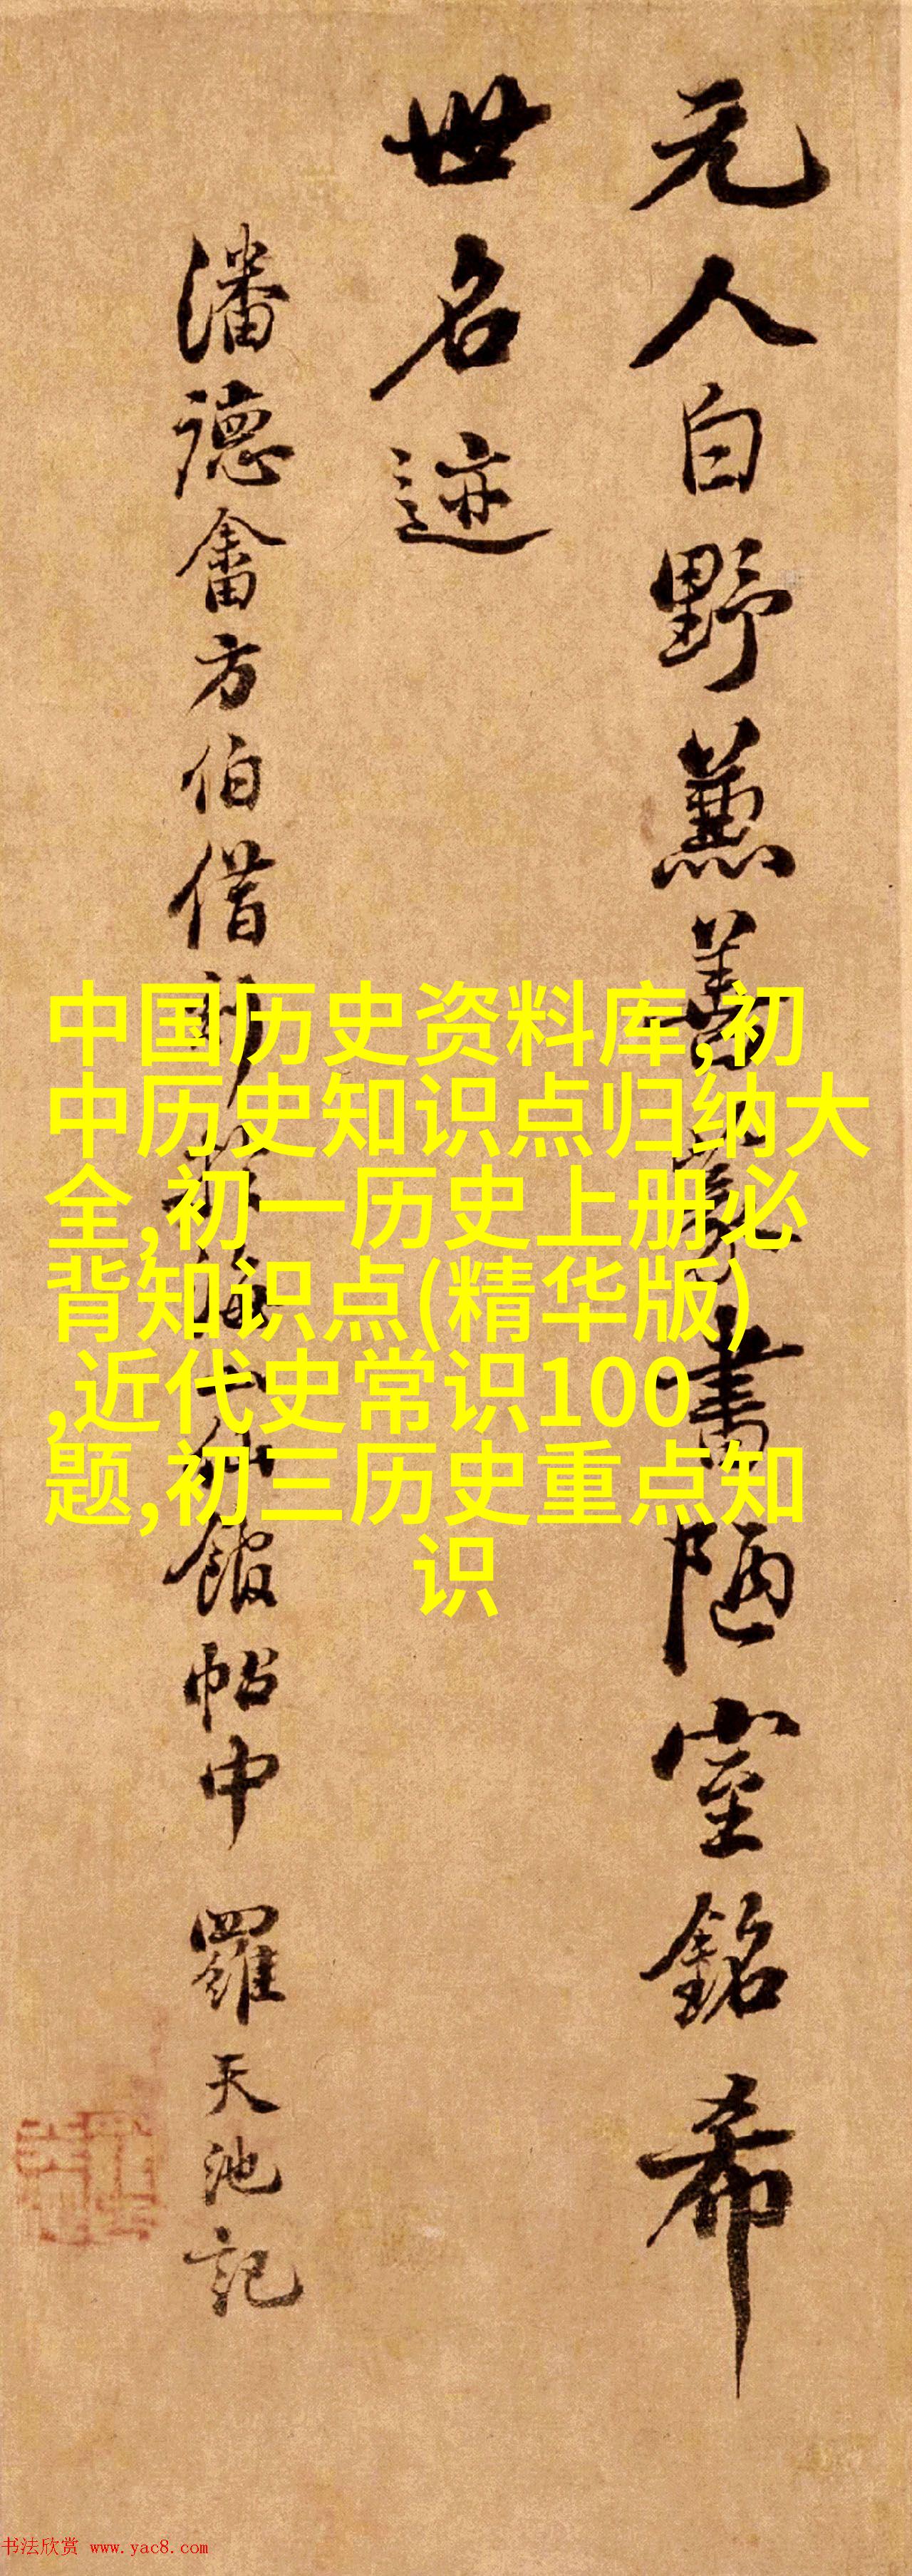 元人白野兼善書陋室銘希
世名迹
潘德畬方伯借刻於海山仙館帖中 羅天池記
中国历史资料库,初
中历史知识点归纳大
全,初一历史上册必
背知识点(精华版)
,近代史常识100
题,初三历史重点知
识
书法欣赏 www.yac8.com